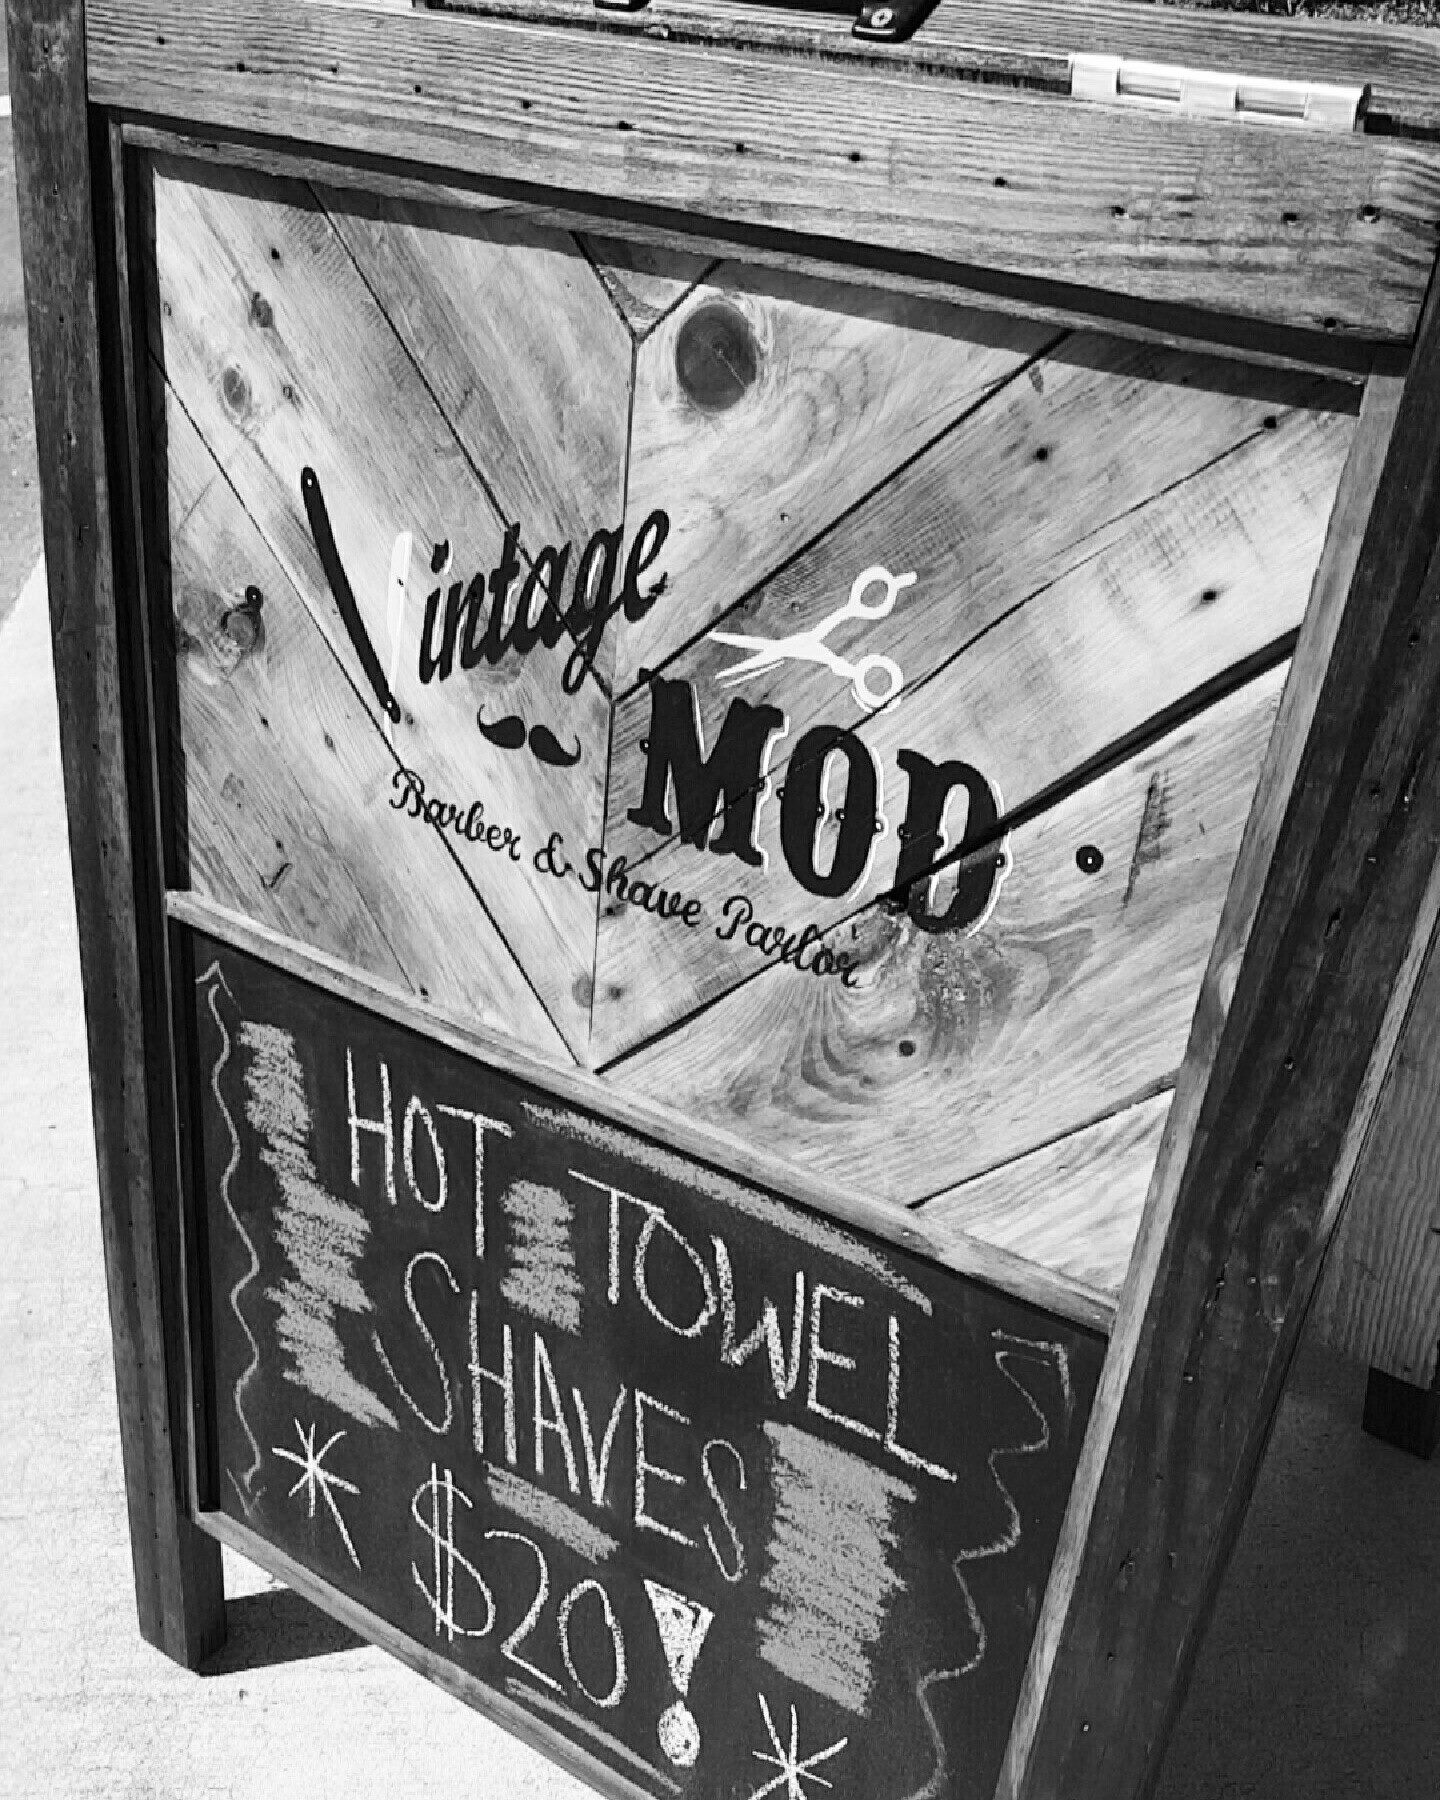 Vintage
MOD
Barber & Shave Parlor
HOT TOWEL
SHAVES
$20!